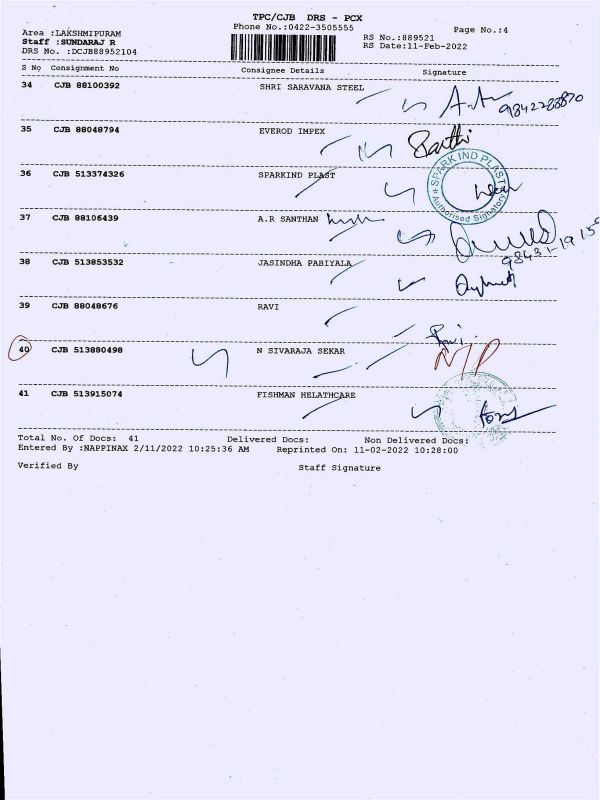 TPC/CJB DRS - PCX
Phone No.:0422-3505555
Page No.:4
Area :LAKSHMIPURAM
RS No.:889521
Staff :SUNDARAJ R
RS Date:11-Feb-2022
DRS No. :DCJB88952104
S No Consignment No Consignee Details Signature
34 CJB 88100392 SHRI SARAVANA STEEL
9842288870
35 CJB 88048794 EVEROD IMPEX
36 CJB 513374326 SPARKIND PLAST
SPARK IND PLAST
Authorised Signatory
37 CJB 88106439 A.R SANTHAN
38 CJB 513853532 JASINDHA PABIYALA
39 CJB 88048676 RAVI
Ravi
40 CJB 513880498 N SIVARAJA SEKAR
N/P
41 CJB 513915074 FISHMAN HELATHCARE
Total No. Of Docs: 41 Delivered Docs: Non Delivered Docs:
Entered By :NAPPINAX 2/11/2022 10:25:36 AM Reprinted On: 11-02-2022 10:28:00
Verified By Staff Signature